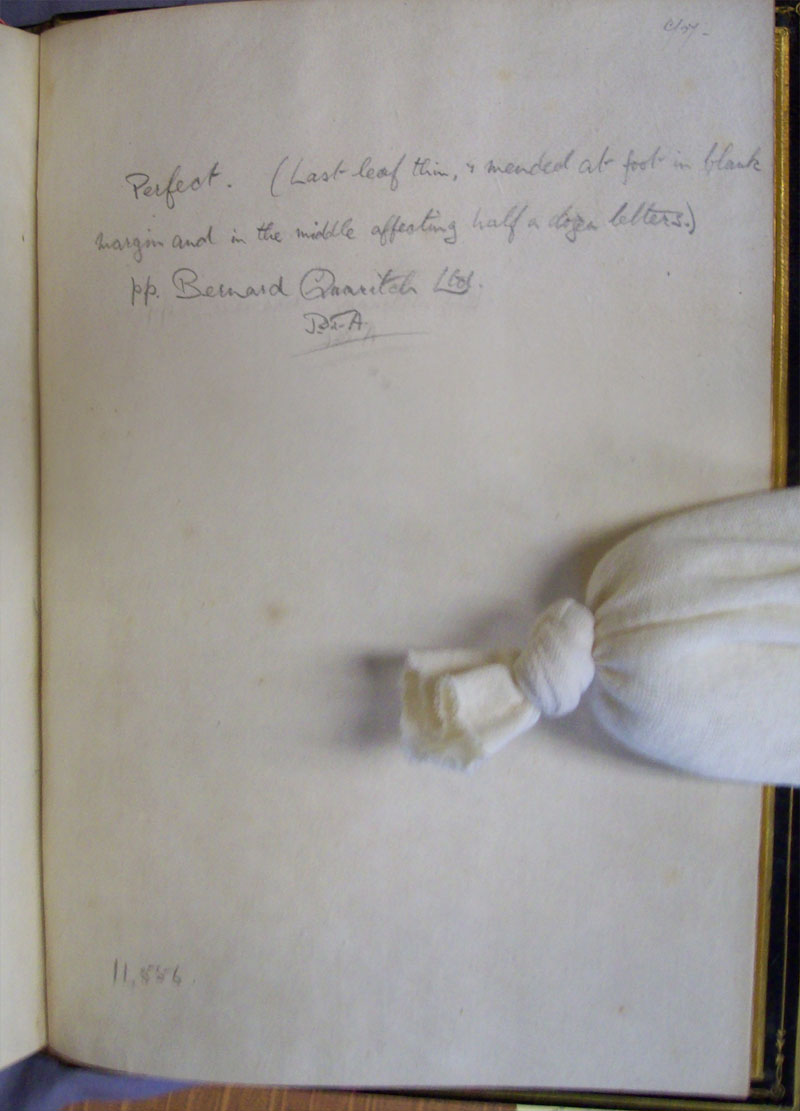 Perfect. (Last leaf thin, & mended at foot in blank
margin and in the middle affecting half a dozen letters.)
pp. Bernard Quaritch Ltd.